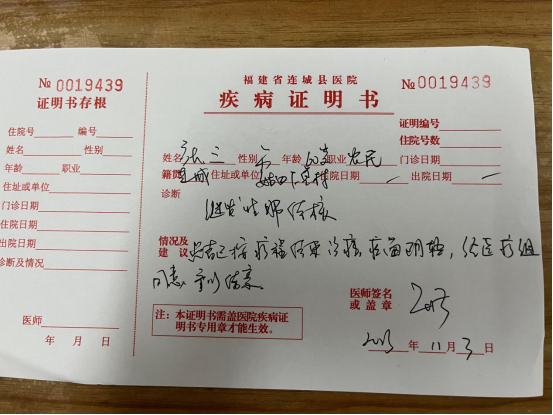 № 0019439
证明书存根
住院号 编号
姓名 性别
年龄 职业
住址或单位
门诊日期
住院日期
出院日期
诊断及情况
医师
年 月 日
福建省连城县医院
№ 0019439
疾病证明书
证明编号
住院号数
姓名 张三 性别 年龄 60岁 职业 农民 门诊日期
籍贯 连城 住址或单位 住院日期 出院日期
诊断
继发性肺结核
情况及建议 患者已按疗程 治疗, 经医疗组
同意, 予以结案
医师签名
或盖章
注:本证明书需盖医院疾病证
明书专用章才能生效。
年 11 月 3 日